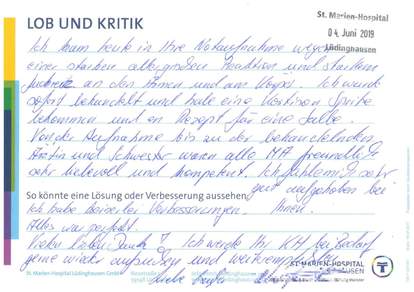 LOB UND KRITIK
St. Marien-Hospital
04. Juni 2019
Lüdinghausen
Ich kam heute in Ihre Notaufnahme wegen
einer starken allergischen Reaktion und starkem
Juckreiz an den Armen und am Kopf. Ich wurde
sofort behandelt und habe eine Kortison Spritze
bekommen und ein Rezept für eine Salbe.
Von der Aufnahme bis zu der behandelnden
Ärztin und Schwester waren alle MA freundlich
sehr liebevoll und kompetent. Ich fühle mich sehr
gut aufgehoben bei
Ihnen.
So könnte eine Lösung oder Verbesserung aussehen
Ich habe keinerlei Verbesserungen.
Alles war perfekt.
Vielen lieben Dank! Ich werde Ihr KH bei Bedarf
gerne wieder aufsuchen und weiterempfehlen
St. Marien-Hospital Lüdinghausen GmbH
ST. MARIEN-HOSPITAL
LÜDINGHAUSEN
Liebe Grüße